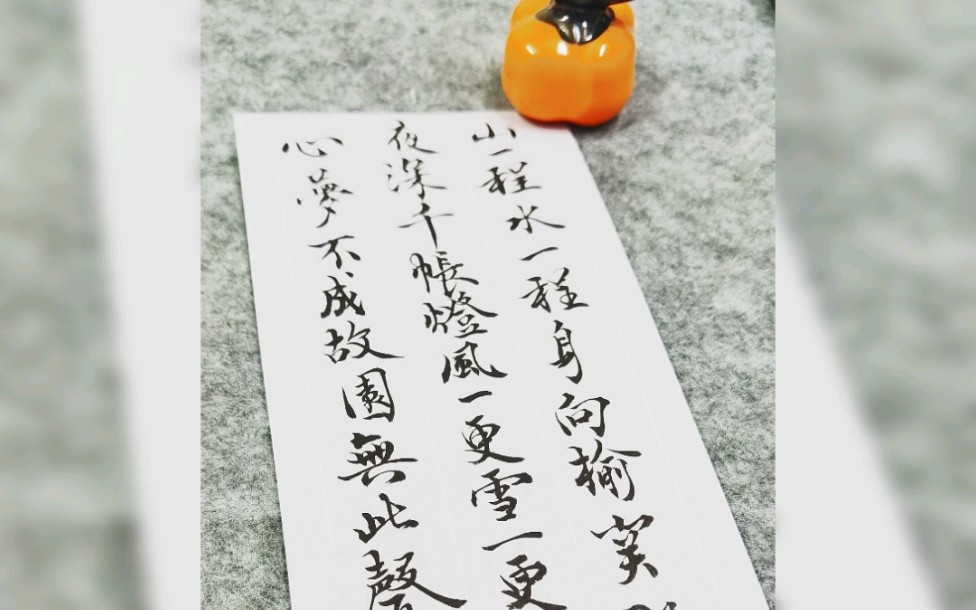 山一程水一程身向榆關
夜深千帳燈風一更雪一更
心夢不成故園無此聲